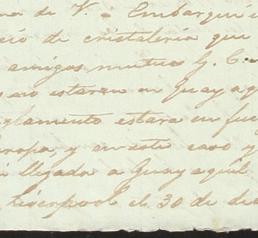 de V. - Embarqué
de cristaleria que
amigos mutuo G. C.
estaran en Guayaq
glamento estara en fu
ropa, y en este caso y
llegada a Guayaquil
Liverpool el 30 de di